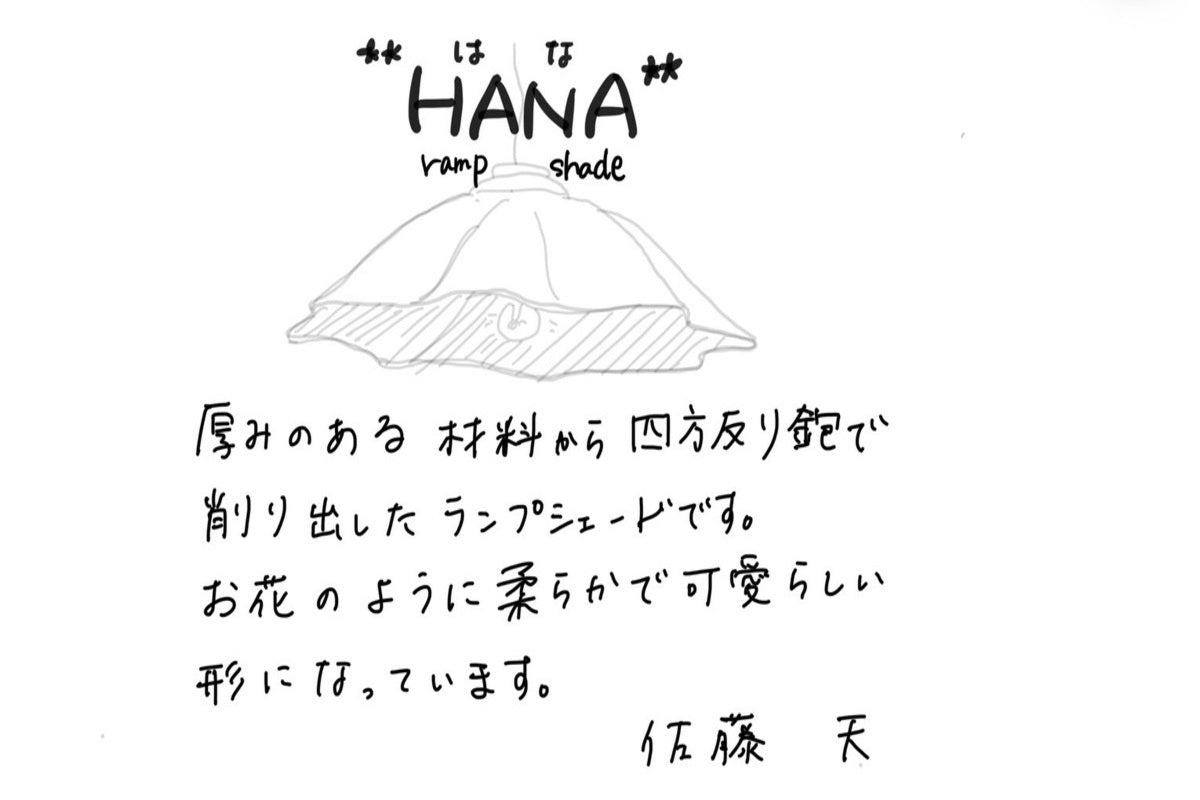 はな
**HANA**
ramp shade
厚みのある材料から四方反り鉋で
削り出したランプシェードです。
お花のように柔らかで可愛らしい
形になっています。
佐藤 天